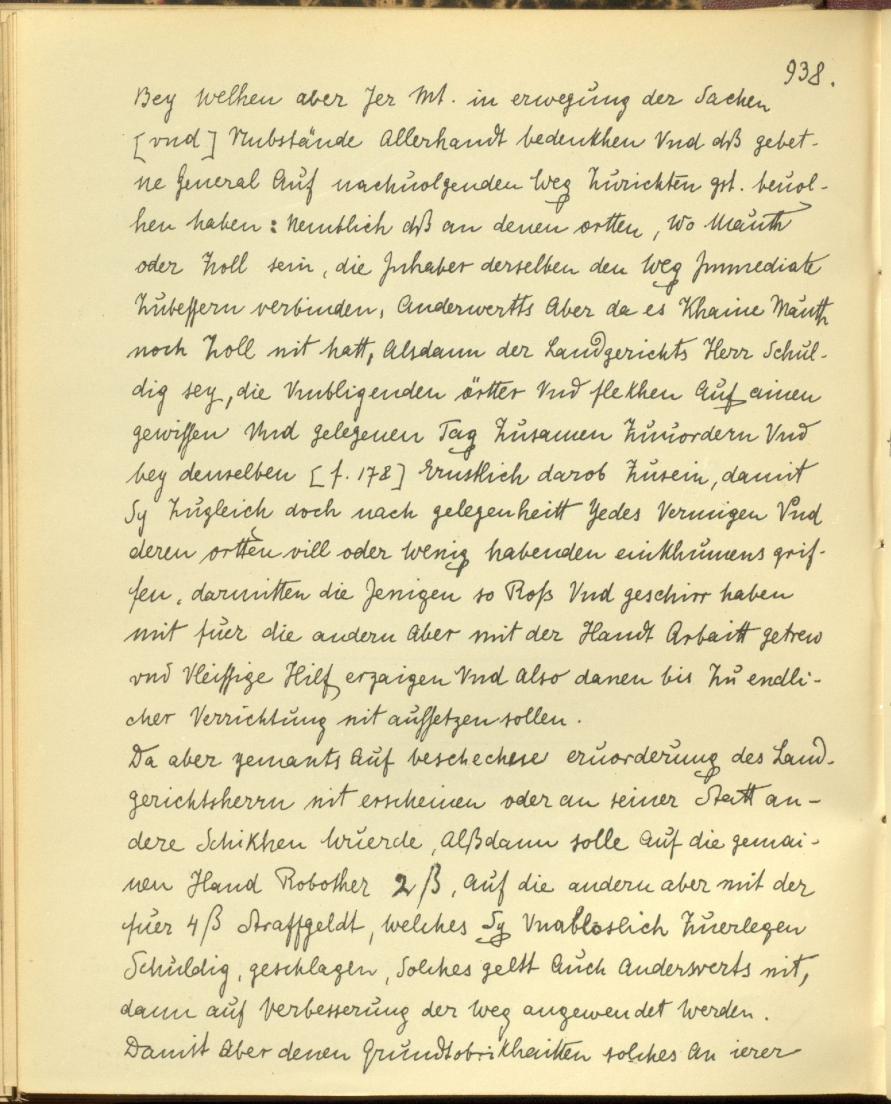 938.
Bey welhen aber Jer Mt. in erwegung der Sachen
[vnd] Vmbstände Allerhandt bedenkhen Vnd dß gebet-
ne General Auf nachuolgenden Weg Zurichten gst. beuol-
hen haben: Nemblich dß an denen ortten, wo Mauth
oder Zoll sein, die Inhaber derselben den Weg Immediate
Zubessern verbinden, Anderwertts Aber da es Khaine Mauth
noch Zoll nit hatt, Alsdann der Landgerichts Herr Schul-
dig sey, die Vmbligenden örtter Vnd flekhen Auf ainen
gewissen Vnd gelegenen Tag Zusamen Zuuordern Vnd
bey denselben [f. 178] Ernstlich darob Zusein, damit
Sy Zugleich doch nach gelegenheitt Yedes Vermigen Vnd
deren ortten vill oder wenig habenden einkhumens grif-
fen, darmitten die Jenigen so Roß Vnd geschirr haben
mit fuer die andern Aber mit der Handt Arbaitt getrew
vnd Vleissige Hilf erzaigen Vnd Also danen bis Zu endli-
cher Verrichtung nit aussetzen sollen.
Da aber yemants Auf beschechene eruorderung des Land-
gerichtsherrn nit erscheinen oder an seiner Statt an-
dere Schikhen wuerde, Alßdann solle Auf die gemai-
nen Hand Robother 2 ß, Auf die andern aber mit der
fuer 4 ß Straffgeldt, welches Sy Vnablöslich Zuerlegen
Schuldig, geschlagen, Solches geltt Auch Anderswerts nit,
dann auf Verbesserung der Weg angewendet werden.
Damit Aber denen Grundtobrikhaitten solches An ierer